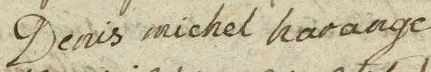 Denis michel harange